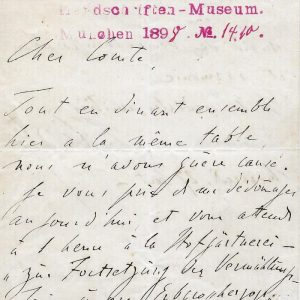 Handschriften-Museum.
München 1898 No. 14.10.
Cher Comte,
Tout en dinant ensemble
hier à la même table,
nous n'avons guère causé.
Je vous prie de me dédommager
aujourd'hui et vous attends
à 1 heure à la Hofgärtnerei
zur Fortsetzung der Vermählungs-
Erbgroßherzogs